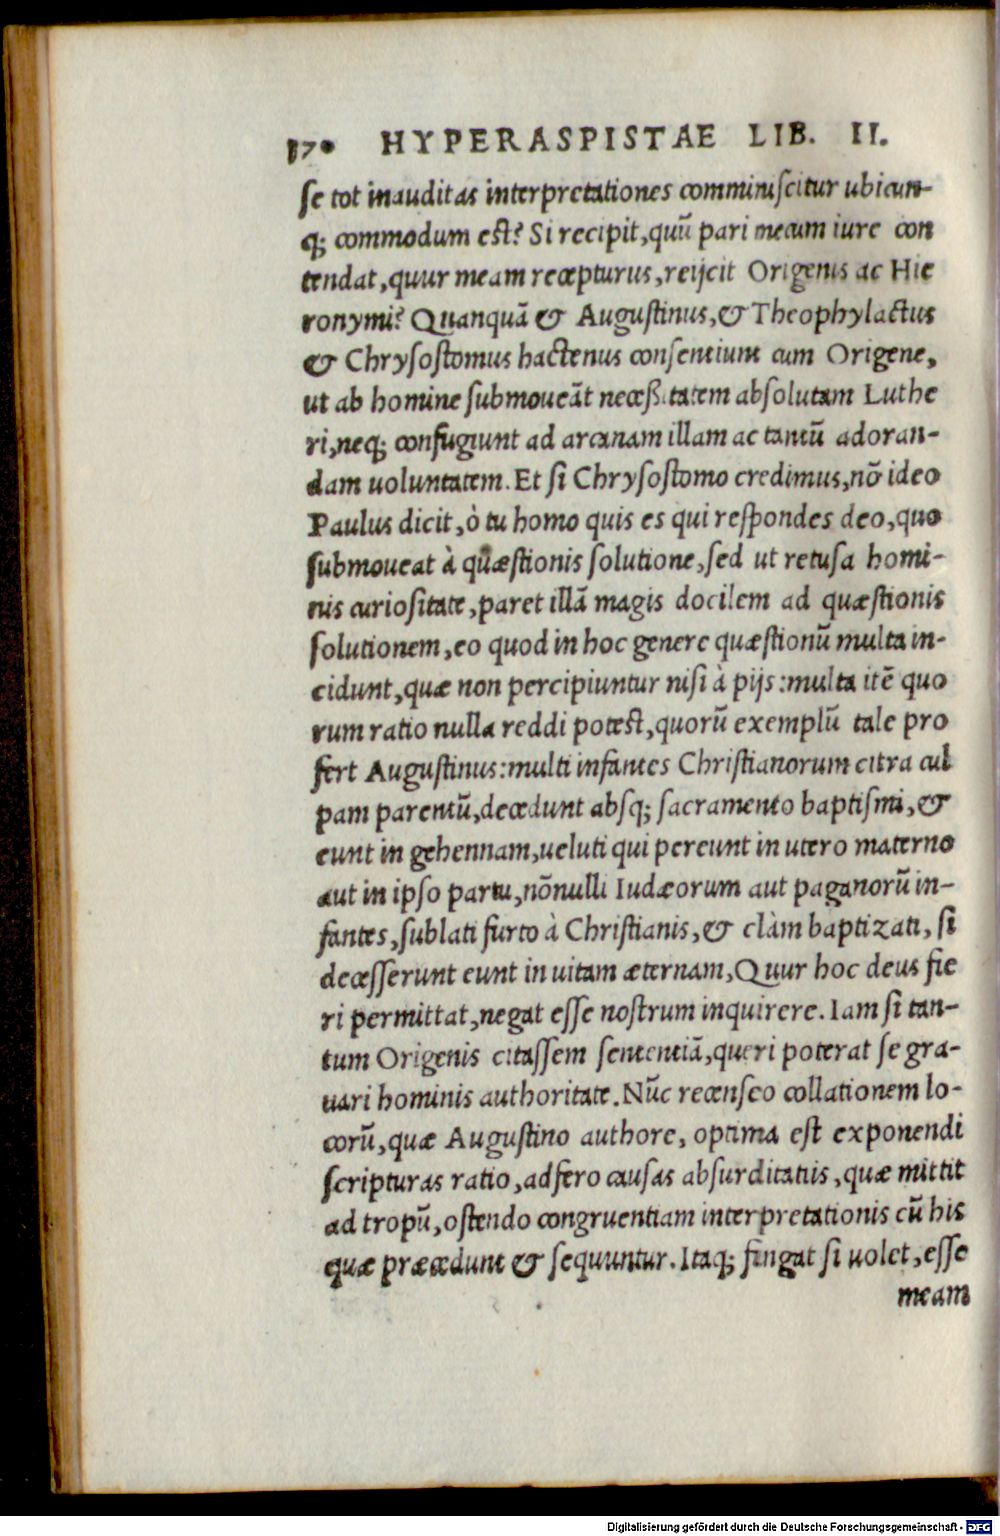 370 HYPERASPISTAE LIB. II.
se tot inauditas interpretationes comminiscitur ubicun-
q; commodum est? Si recipit, quũ pari mecum iure con
tendat, quur meam recepturus, reijcit Origenis ac Hie
ronymi? Quanquã & Augustinus, & Theophylactus
& Chrysostomus hactenus consentiunt cum Origene,
ut ab homine submoueãt necessitatem absolutam Luthe
ri, neq; confugiunt ad arcanam illam ac tantũ adoran-
dam uoluntatem. Et si Chrysostomo credimus, nõ ideo
Paulus dicit, ò tu homo quis es qui respondes deo, quo
submoueat à quæstionis solutione, sed ut retusa homi-
nis curiositate, paret illã magis docilem ad quæstionis
solutionem, eo quod in hoc genere quæstionũ multa in-
cidunt, quæ non percipiuntur nisi à pijs: multa itẽ quo
rum ratio nulla reddi potest, quorũ exemplũ tale pro
fert Augustinus: multi infantes Christianorum citra cul
pam parentũ, decedunt absq; sacramento baptismi, &
eunt in gehennam, ueluti qui pereunt in utero materno
aut in ipso partu, nõnulli Iudæorum aut paganorũ in-
fantes, sublati furto à Christianis, & clàm baptizati, si
decesserunt eunt in uitam æternam, Quur hoc deus fie
ri permittat, negat esse nostrum inquirere. Iam si tan-
tum Origenis citassem sententiã, queri poterat se gra-
uari hominis authoritate. Nũc recenseo collationem lo-
corũ, quæ Augustino authore, optima est exponendi
scripturas ratio, adfero causas absurditatis, quæ mittit
ad tropũ, ostendo congruentiam interpretationis cũ his
quæ præcedunt & sequuntur. Itaq; fingat si uolet, esse
meam
Digitalisierung gefördert durch die Deutsche Forschungsgemeinschaft - DFG